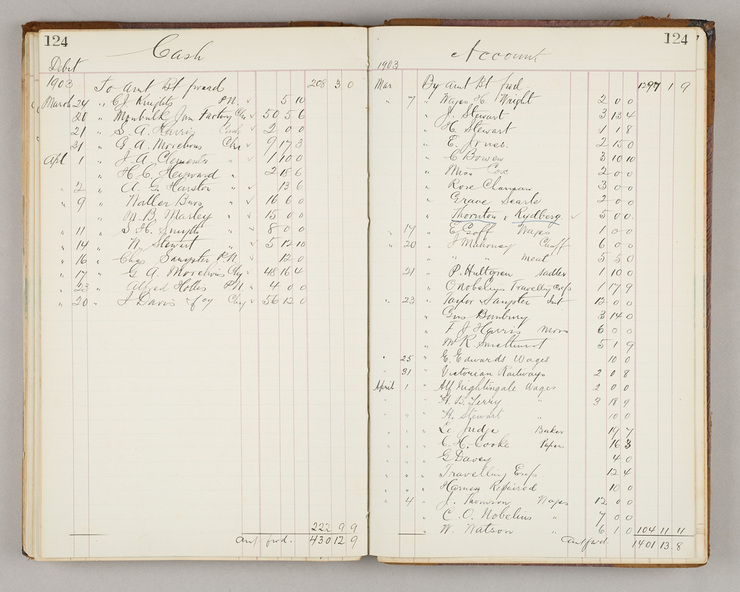 124
Cash
Debit
1903 To Amt Bt forward 208 3 0
March 24 " E J Knights P.N. 5 10
" S. A. Harris 2 0 0
21 " G. A. Morehouse Chq 9 17 3
Apl 1 " J. A. Clements " 1 10 0
" H. C. Heyward " 2 18 6
" 2 " A. G. Hairston " 13 6
" 9 " Walter 16 6 0
" M. B. Marley " 15 0 0
" 11 " S. H. Smyth " 8 0 0
" 14 " W. Stewart 5 12 10
" 16 " Chas Sangster P.N. 12 0
" 17 " G. A. Morehouse Chq 48 16 4
" 23 " Alfred Hollis P.N. 4 0 0
" 20 " J Davis & Coy Chq 56 12 0
222 9 9
Amt fwd. 430 12 9
124
Account
1903
Mar By Amt Bt fwd 1297 1 9
" 7 " Wages H. Wright 2 0 0
" J. Stewart 3 12 4
" H. Stewart 1 1 8
" E. Jones 2 15 0
" C Bowen 3 10 10
" Miss Cox 2 0 0
" Rose Clampane 3 0 0
" Grace Searle 2 0 0
" Thornton & Rydberg 5 0 0
" 17 " E. Goff Wages 1 0 0
" 20 " J Mahoney Chaff 6 0 0
" " " meat 5 5 0
21 " P. Hultgren Saddler 1 10 0
" C Nobelius Travelling Exps 1 17 9
" 23 " Taylor Sangster Int 12 0 0
" Gus Bunbury 3 14 0
" F. J. Harris 6 0 0
" M R Smethurst 5 1 9
" 25 " E. Edwards Wages 10 0
" 31 " Victorian Railways 2 0 8
April 1 " Alf Nightingale Wages 2 0 0
" H. B. Terry " 3 18 9
" H. Stewart " 10 0
" Le Judge Baker 19 7
" C. H. Cooke Paper 16 3
" G Davey 4 0
" Travelling Exps 12 4
" Harness Repaired 10 0
" 4 " J. Thomson Wages 12 0 0
" C. O. Nobelius " 7 0 0
" W. Watson " 6 1 0 104 11 11
Amt fwd 1401 13 8